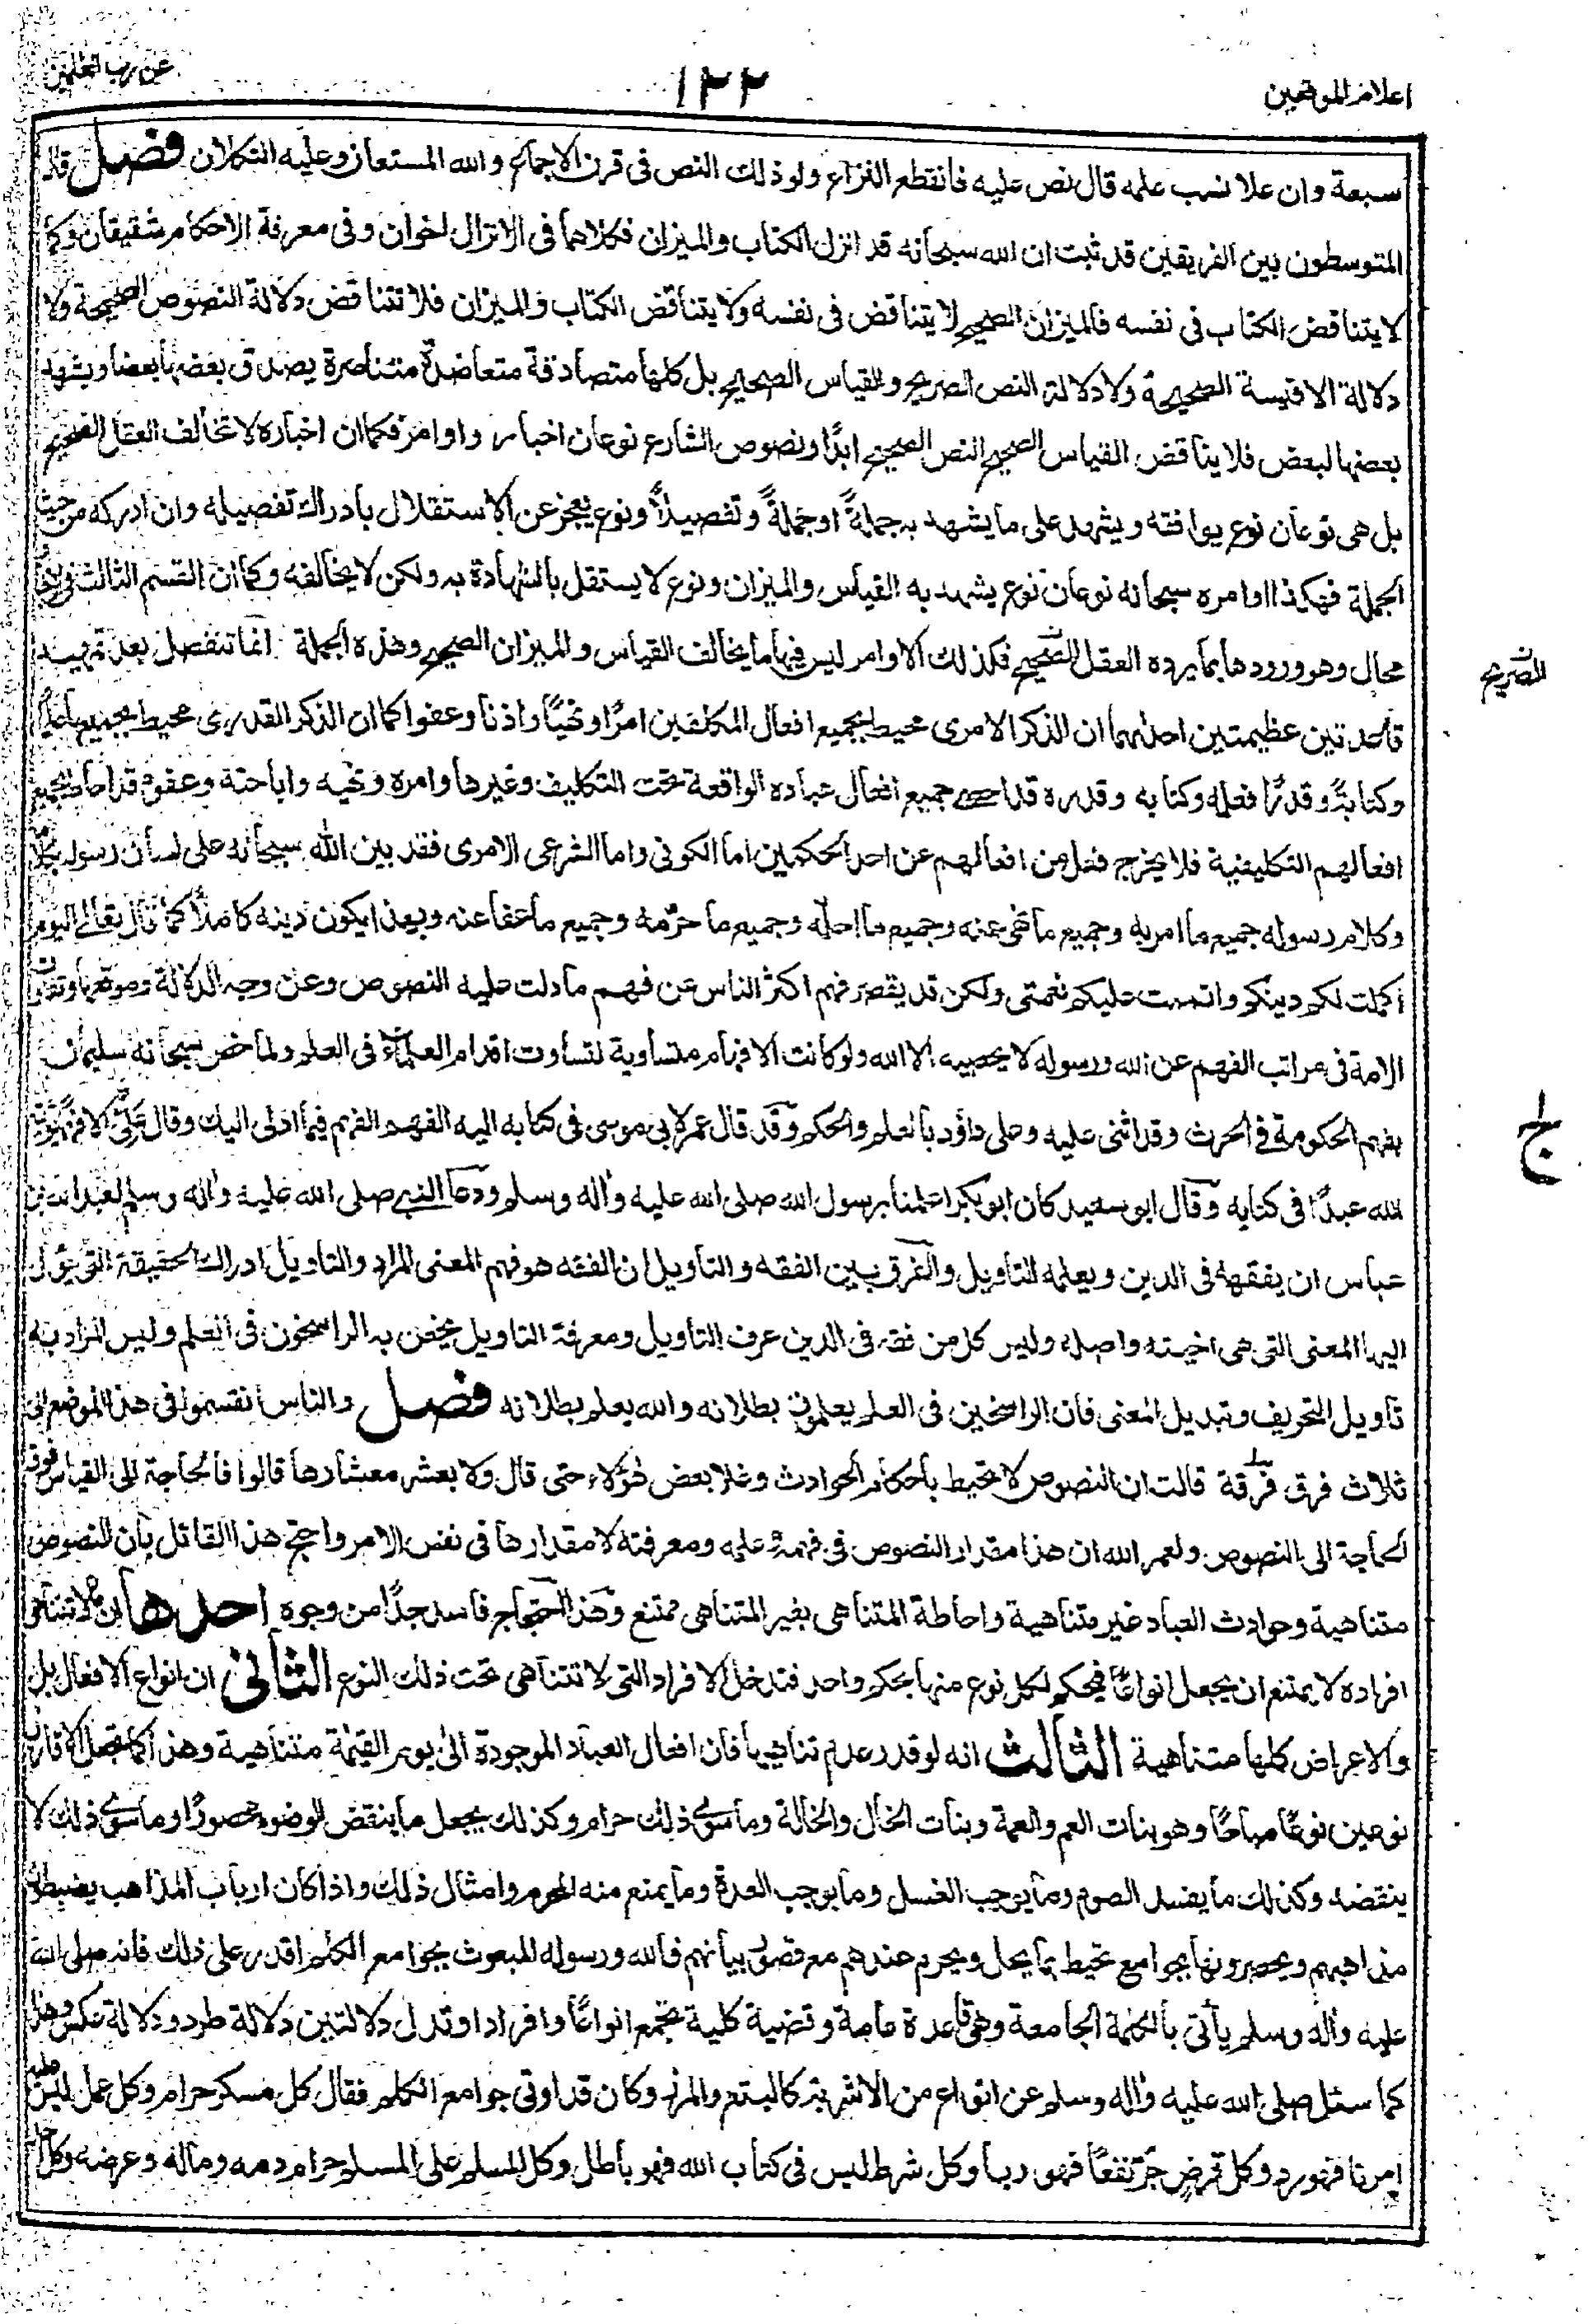 اعلام الموقعين
١٢٢
عن رب العلمين
سبعة وان علا نسب علمه قال نص عليه فانقطع النزاع ولو ذلك النص فى قرن الاجماع والله المستعان وعليه التكلان فصل قال
المتوسطون بين الفريقين قد ثبت ان الله سبحانه قد انزل الكتاب والميزان فكلاهما فى الانزال اخوان وفى معرفة الاحكام شقيقان وكما
لا يتناقض الكتاب فى نفسه فالميزان الصحيح لا يتناقض فى نفسه ولا يتناقض الكتاب والميزان فلا تتناقض دلالة النصوص الصحيحة ولا
دلالة الاقيسة الصحيحة ولا دلالة النص الصريح والقياس الصحيح بل كلها متصادقة متعاضدة متناصرة يصدق بعضها بعضا ويشهد
بعضها لبعض فلا يناقض القياس الصحيح النص الصحيح ابدًا ونصوص الشارع نوعان اخبار واوامر فكما ان اخباره لا تخالف العقل الصحيح
بل هى نوعان نوع يوافقه ويشهد على ما يشهد به جملةً او جملةً وتفصيلاً ونوع يعجز عن الاستقلال بادراك تفصيله وان ادركه من حيث
الجملة فهكذا اوامره سبحانه نوعان نوع يشهد به القياس والميزان ونوع لا يستقل بالشهادة به ولكن لا يخالفه وكما ان القسم الثالث فى
محال وهو ورودها بما يرده العقل الصحيح فكذلك الاوامر ليس فيها ما يخالف القياس والميزان الصحيح وهذه الجملة انما تنفصل بعد تمهيد
الصريح
قاعدتين عظيمتين احدٰهما ان الذكر الامرى محيط بجميع افعال المكلفين امرًا ونهيًا واذنا وعفوا كما ان الذكر القدرى محيط بجميعها علمًا
وكتابةً وقدرًا فعلمه وكتابه وقدره قد احصى جميع افعال عباده الواقعة تحت التكليف وغيرها وامره ونهيه واباحته وعفوه قد احاط بجميع
افعالهم التكليفية فلا يخرج فعل من افعالهم عن احد الحكمين اما الكونى واما الشرعى الامرى فقد بين الله سبحانه على لسان رسوله بكلامه
وكلام رسوله جميع ما امر به وجميع ما نهى عنه وجميع ما احله وجميع ما حرمه وجميع ما عفا عنه وبهذا يكون دينه كاملاً كما قال تعالى اليوم
اكملت لكم دينكم واتممت عليكم نعمتى ولكن قد يقصر فهم اكثر الناس عن فهم ما دلت عليه النصوص وعن وجه الدلالة وموقعها وتفاوت
الامة فى مراتب الفهم عن الله ورسوله لا يحصيه الا الله ولو كانت الافهام متساوية لتساوت اقدام العلماء فى العلم ولما خص سبحانه سليمان
بفهم الحكومة فى الحرث وقد اثنى عليه وعلى داؤد بالعلم والحكم وقد قال عمر لابى موسى فى كتابه اليه الفهم الفهم فيما ادلى اليك وقال على الا فهما يؤتيه
الله عبدًا فى كتابه وقال ابو سعيد كان ابو بكر اعلمنا برسول الله صلى الله عليه واٰله وسلم ودعا النبى صلى الله عليه واٰله وسلم لعبد الله بن
عباس ان يفقهه فى الدين ويعلمه التاويل والفرق بين الفقه والتاويل ان الفقه هو فهم المعنى المراد والتاويل ادراك الحقيقة التى يؤل
اليها المعنى التى هى اخيته واصله وليس كل من فقه فى الدين عرف التاويل ومعرفة التاويل يختص به الراسخون فى العلم وليس المراد به
تاويل التحريف وتبديل المعنى فان الراسخين فى العلم يعلمون بطلانه والله يعلم بطلانه فصل والناس انقسموا فى هذا الموضع الى
ثلاث فرق فرقة قالت ان النصوص لا تحيط باحكام الحوادث وغلا بعض هٰؤلاء حتى قال ولا بعشر معشارها قالوا فالحاجة الى القياس فوق
الحاجة الى النصوص ولعمر الله ان هذا مقدار النصوص فى فهمه وعلمه ومعرفته لا مقدارها فى نفس الامر واحتج هذا القائل بان النصوص
متناهية وحوادث العباد غير متناهية واحاطة المتناهى بغير المتناهى ممتنع وهذا احتجاج فاسد جدًا من وجوه احدها ان ما لا تتناهى
افراده لا يمتنع ان يجعل انواعًا فيحكم لكل نوع منها بحكم واحد فتدخل الافراد التى لا تتناهى تحت ذلك النوع الثانى ان انواع الافعال بل
والاعراض كلها متناهية الثالث انه لو قدر عدم تناهيها فان افعال العباد الموجودة الى يوم القيٰمة متناهية وهذا كما تجعل الاقارب
نوعين نوعًا مباحًا وهو بنات العم والعمة وبنات الخال والخالة وما سوى ذلك حرام وكذلك يجعل ما ينقض الوضوء محصورًا وما سوى ذلك لا
ينقضه وكذلك ما يفسد الصوم وما يوجب الغسل وما يوجب العدة وما يمنع منه المحرم وامثال ذلك واذا كان ارباب المذاهب يضبطون
مذاهبهم ويحصرونها بجوامع تحيط بما يحل ويحرم عندهم مع قصور بيانهم فالله ورسوله المبعوث بجوامع الكلم اقدر على ذلك فانه صلى الله
عليه واٰله وسلم يأتى بالكلمة الجامعة وهى قاعدة عامة وقضية كلية تجمع انواعًا وافرادا وتدل دلالتين دلالة طرد ودلالة عكس وهذا
كما سئل صلى الله عليه واٰله وسلم عن انواع من الاشربة كالبتع والمزر وكان قد اوتى جوامع الكلم فقال كل مسكر حرام وكل عمل ليس عليه
امرنا فهو رد وكل قرضٍ جرّ نفعًا فهو ربا وكل شرط ليس فى كتاب الله فهو باطل وكل المسلم على المسلم حرام دمه وماله وعرضه وكل